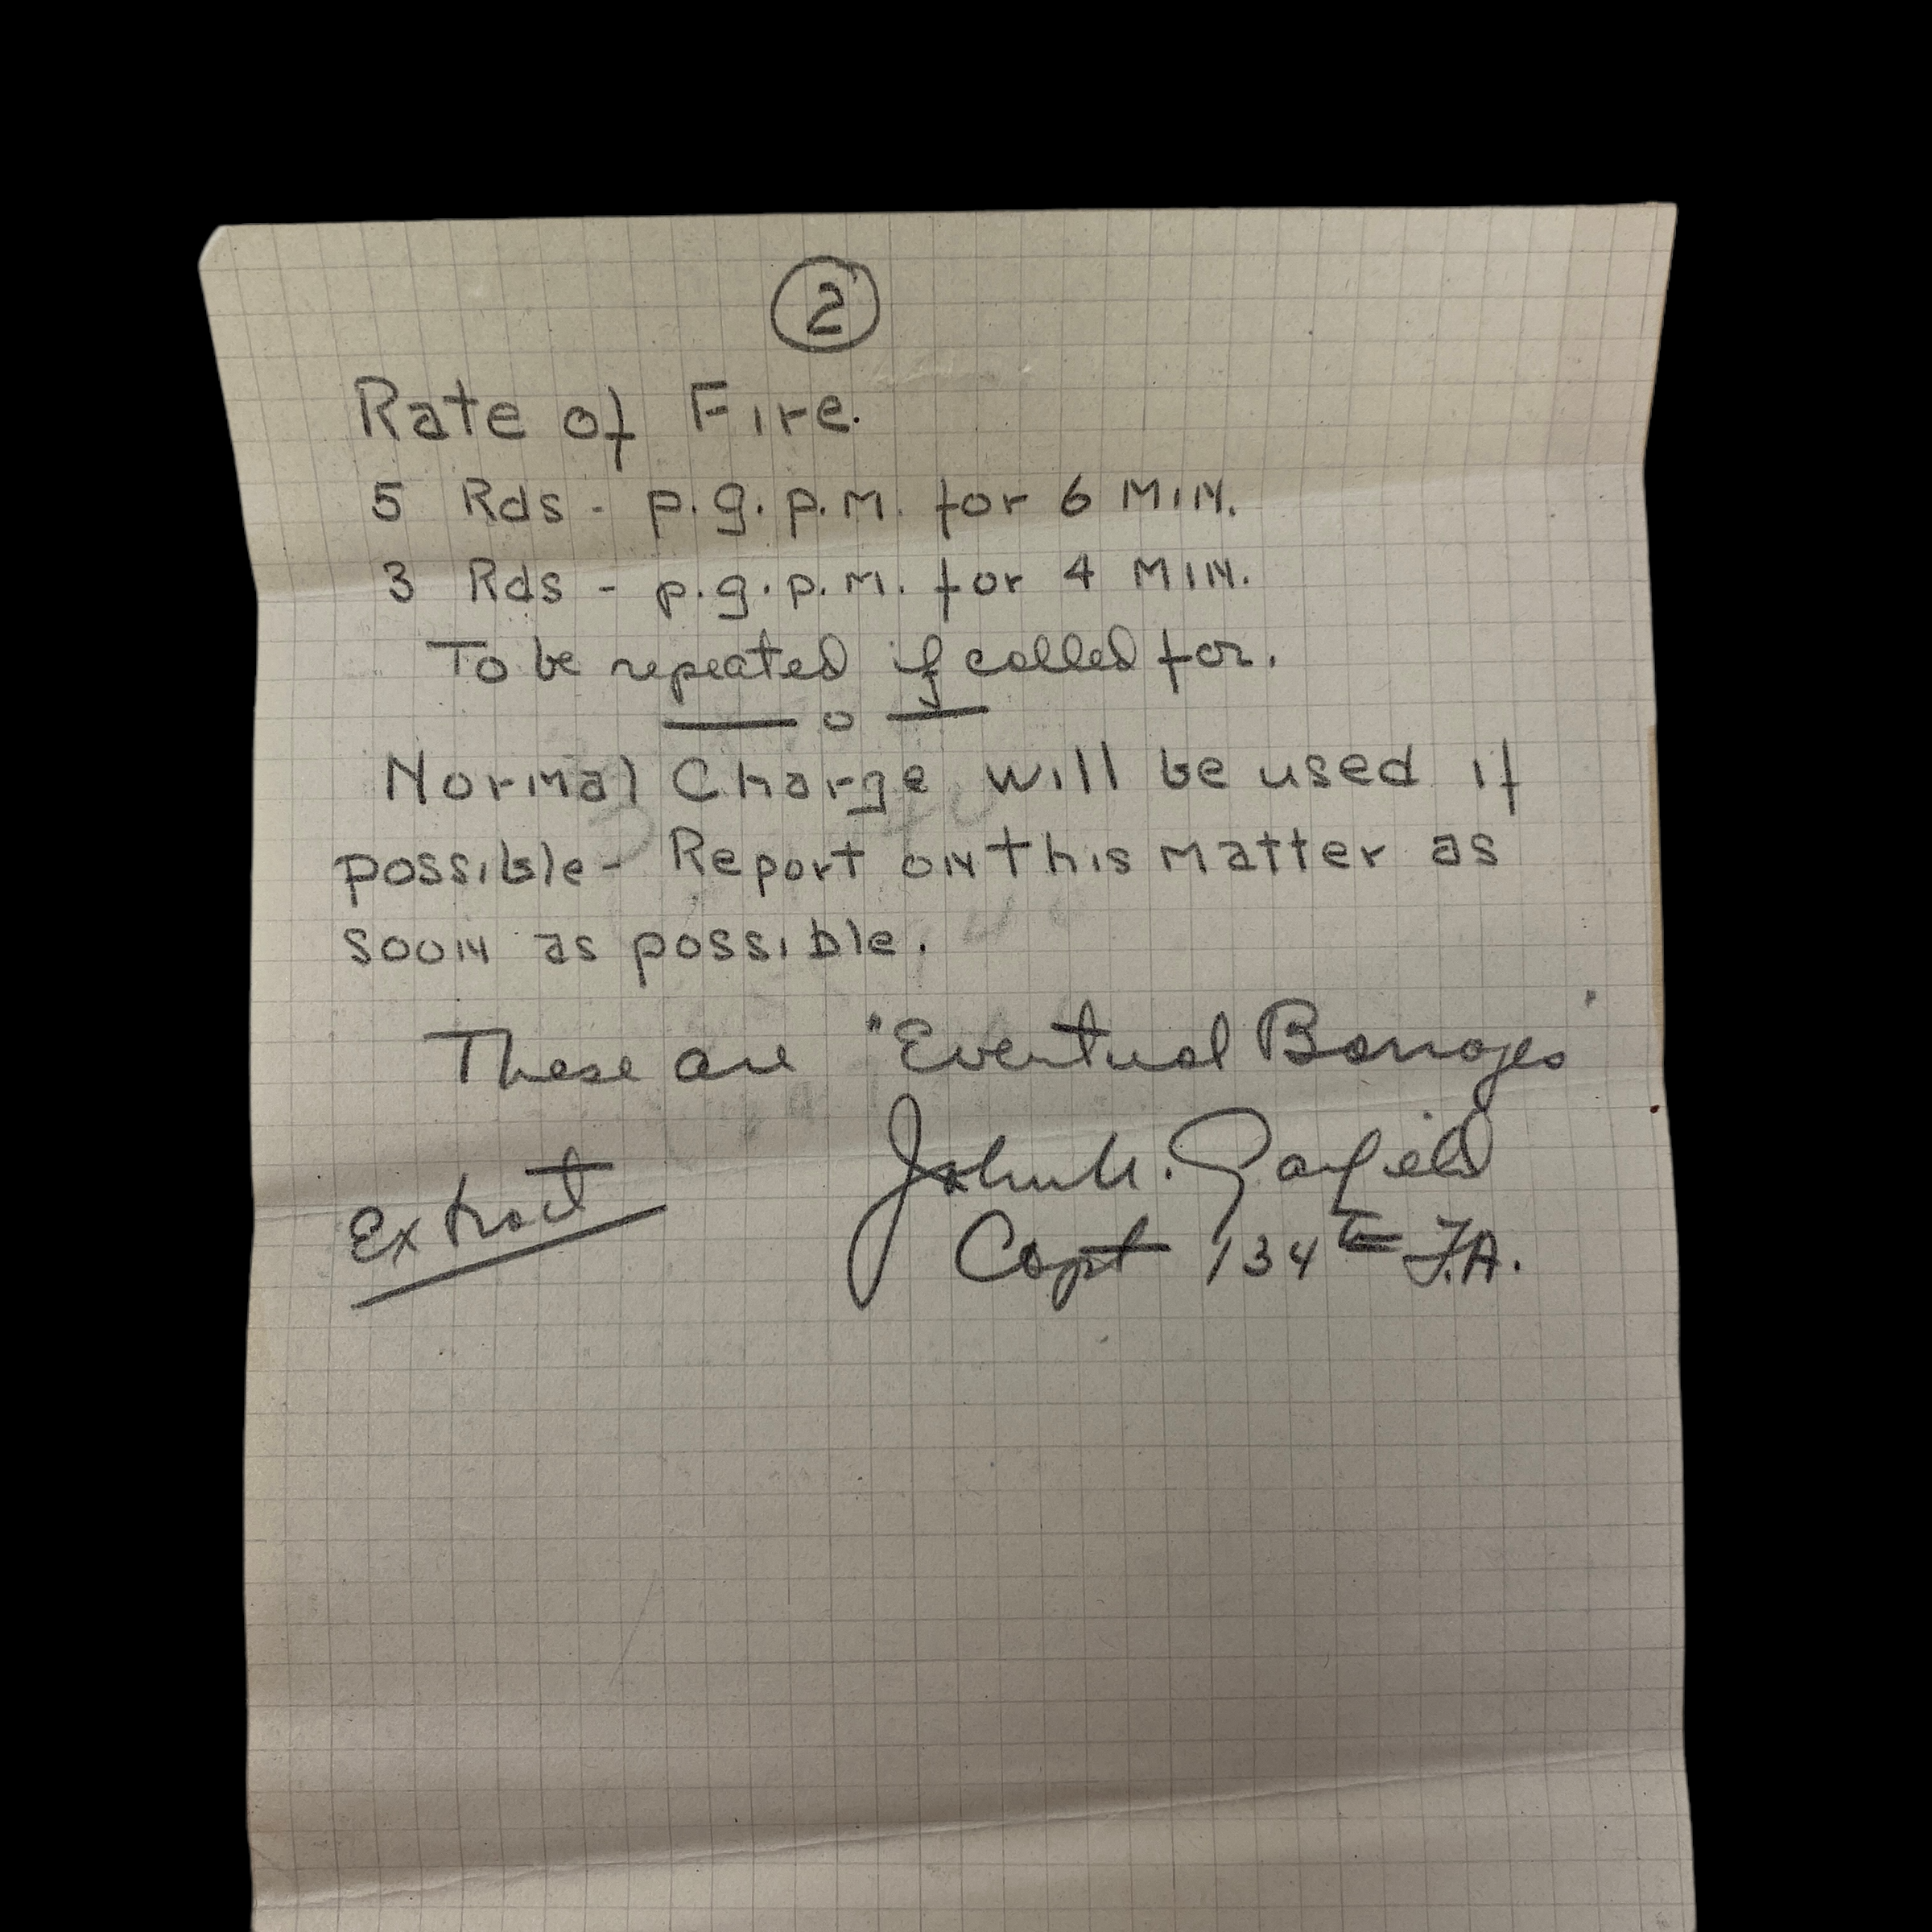 2
Rate of Fire.
5 Rds - p.g.p.m. for 6 Min.
3 Rds - p.g.p.m. for 4 Min.
To be repeated if called for.
— o —
Normal Charge will be used if
possible - Report on this matter as
soon as possible.
These are "Eventual Barrages"
Extract John N. Garfield
Capt 134th F.A.